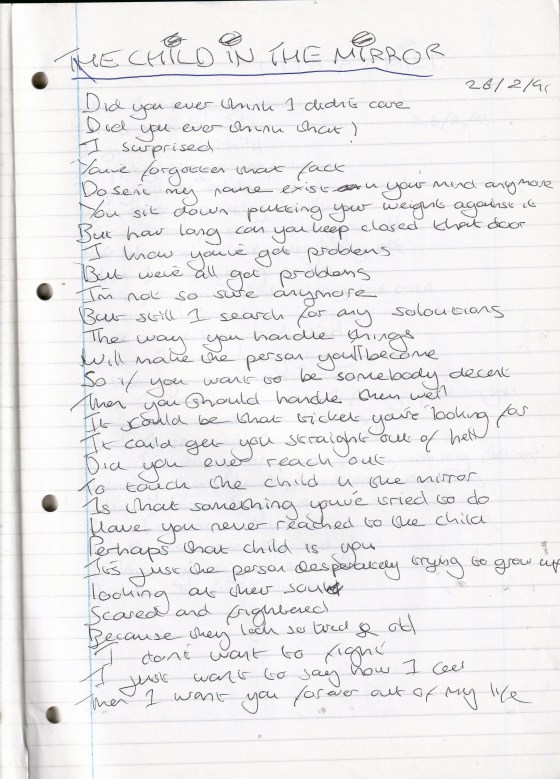 THE CHILD IN THE MIRROR
26/2/91
Did you ever think I didn't care
Did you ever think that?
I surprised
You've forgotten that fact
Dosen't my name exist in your mind anymore
You sit down putting your weight against it
But how long can you keep closed that door
I know you've got problems
But we've all got problems
I'm not so sure anymore
But still I search for any soloutions
The way you handle things
Will make the person you'll become
So if you want to be somebody decent
Then you should handle them well
It could be that ticket you're looking for
It could get you straight out of hell
Did you ever reach out
To touch the child in the mirror
Is that something you've tried to do
Have you never reached to the child
Perhaps that child is you
It's just the person desperately trying to grow up
looking at their soul
Scared and frightened
Because they look so tired & old
I don't want to fight
I just want to say how I feel
Then I want you forever out of my life